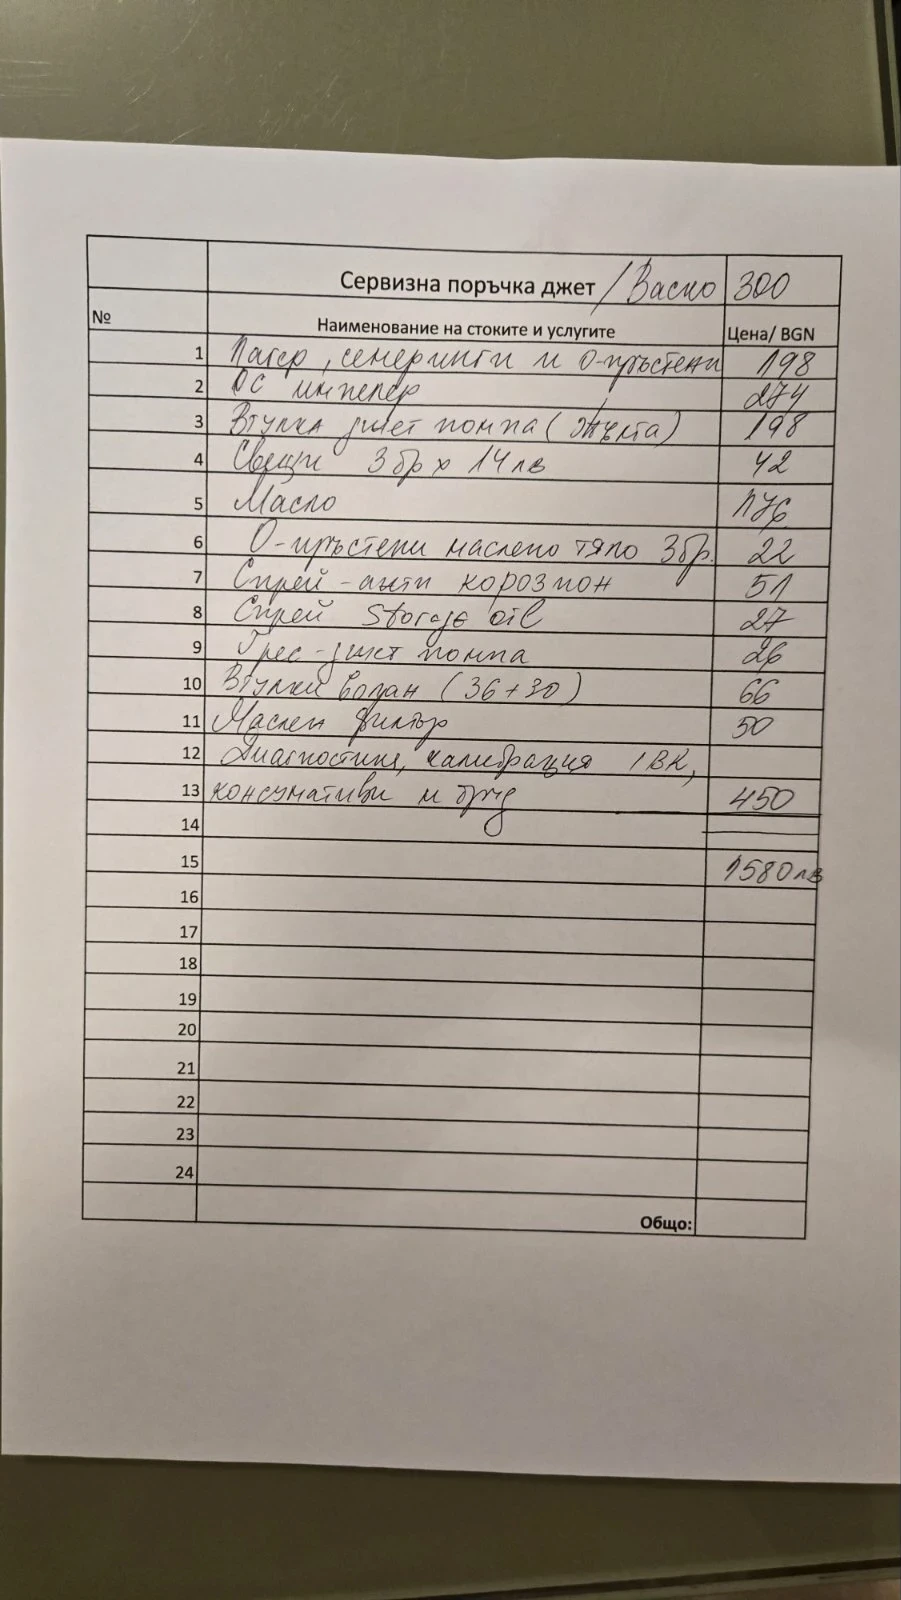 Сервизна поръчка джет / Васко 300
№ Наименование на стоките и услугите Цена/ BGN
1 Лагер, семеринги и О-пръстени 198
2 Ос импелер 274
3 Втулка джет помпа (жълта) 198
4 Свещи 3 бр х 14 лв 42
5 Масло 176
6 О-пръстени маслено тяло 3бр. 22
7 Спрей - анти корозион 51
8 Спрей Storage oil 27
9 Грес - джет помпа 26
10 Втулки волан (36+30) 66
11 Маслен филтър 50
12 Диагностика, калибрация IBR,
13 консумативи и труд 450
14
15 1580 лв
16
17
18
19
20
21
22
23
24
Общо: